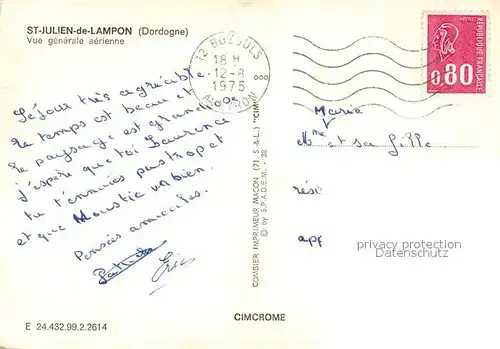 ST-JULIEN-de-LAMPON (Dordogne)
Vue générale aérienne
12 BOZOULS
18 H
12-8
1975
AVEYRON
0,80
REPUBLIQUE FRANÇAISE
Séjour très agréable.
Le temps est beau et
le paysage est grandiose
J'espère que toi Laurence
tu t'ennuies pas trop et
et que Moustic va bien.
Pensées amicales.
Eric
Marie
Mme et sa fille
rési
app
privacy protection
Datenschutz
COMBIER IMPRIMEUR MACON (71, S.-&-L.) "CIM"
© by S.P.A.D.E.M. - 38
CIMCROME
E 24.432.99.2.2614